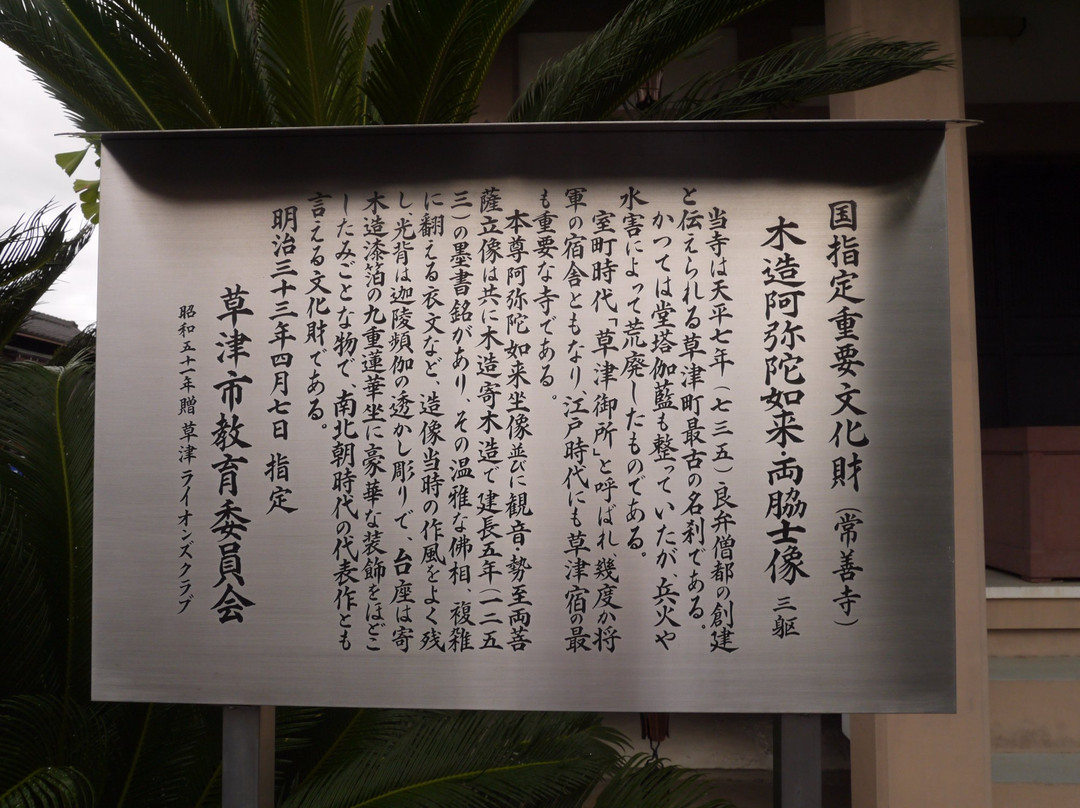 国指定重要文化財（常善寺）
木造阿弥陀如来・両脇士像 三躯
当寺は天平七年（七三五）良弁僧都の創建
と伝えられる草津町最古の名刹である。
かつては堂塔伽藍も整っていたが、兵火や
水害によって荒廃したものである。
室町時代「草津御所」と呼ばれ幾度か将
軍の宿舎ともなり、江戸時代にも草津宿の最
も重要な寺である。
本尊阿弥陀如来坐像並びに観音・勢至両菩
薩立像は共に木造寄木造で建長五年（一二五
三）の墨書銘があり、その温雅な佛相、複雑
に翻える衣文など、造像当時の作風をよく残
し、光背は迦陵頻伽の透かし彫りで、台座は寄
木造漆箔の九重蓮華坐に豪華な装飾をほどこ
したみごとな物で、南北朝時代の代表作とも
言える文化財である。
明治三十三年四月七日 指定
草津市教育委員会
昭和五十一年贈 草津ライオンズクラブ